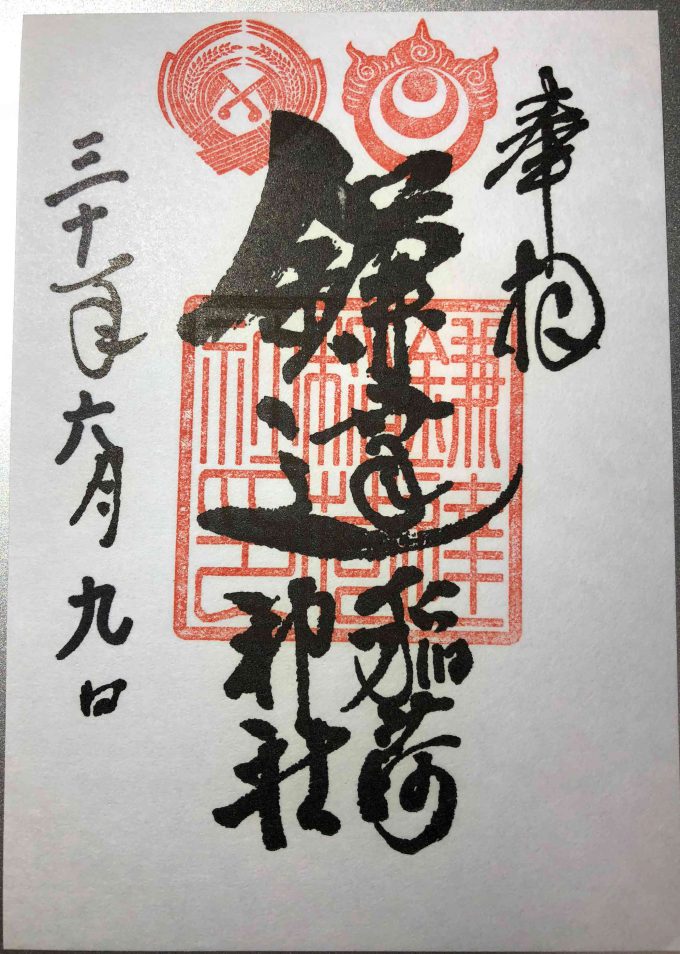 奉拝
鎌達
稲荷
神社
三十年六月九日